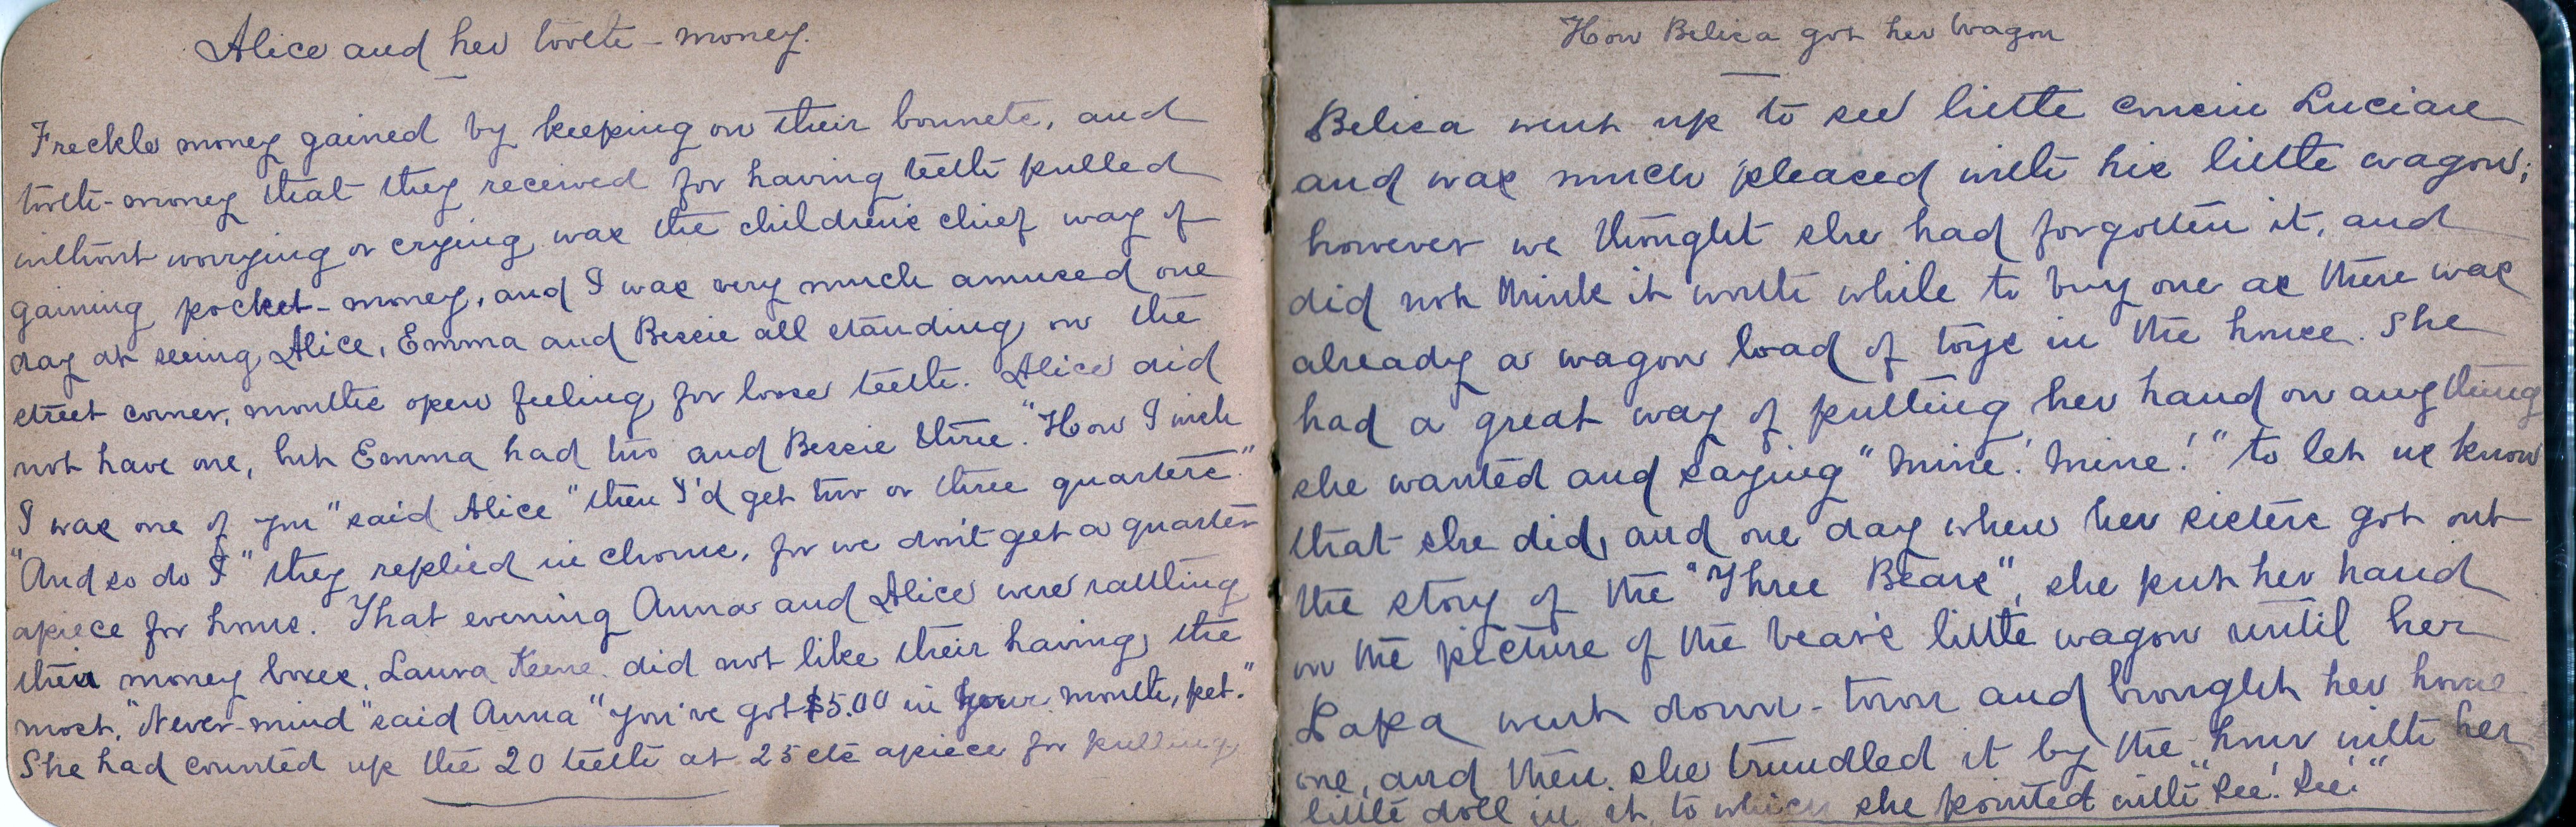 Alice and her tooth-money.
Freckle money gained by keeping on their bonnets, and
tooth-money that they received for having teeth pulled
without worrying or crying, was the children's chief way of
gaining pocket-money, and I was very much amused one
day at seeing Alice, Emma and Bessie all standing on the
street corner, mouths open feeling for loose teeth. Alice did
not have one, but Emma had two and Bessie three. "How I wish
I was one of you" said Alice "then I'd get two or three quarters."
"And so do I" they replied in chorus, for we don't get a quarter
apiece for hours. That evening Anna and Alice were rattling
their money boxes. Laura Keene did not like their having the
most. "Never-mind" said Anna "you've got $5.00 in your mouth, pet."
She had counted up the 20 teeth at 25 cts apiece for pulling
How Belica got her wagon
Belica went up to see little cousin Luciare
and was much pleased with his little wagon;
however we thought she had forgotten it, and
did not think it worth while to buy one as there was
already a wagon load of toys in the house. She
had a great way of putting her hand on any thing
she wanted and saying "mine! mine!" to let us know
that she did, and one day when her sisters got out
the story of the "Three Bears", she put her hand
on the picture of the bear's little wagon until her
Papa went down-town and brought her home
one, and then she trundled it by the hour with her
little doll in it, to which she pointed with "See! See!"